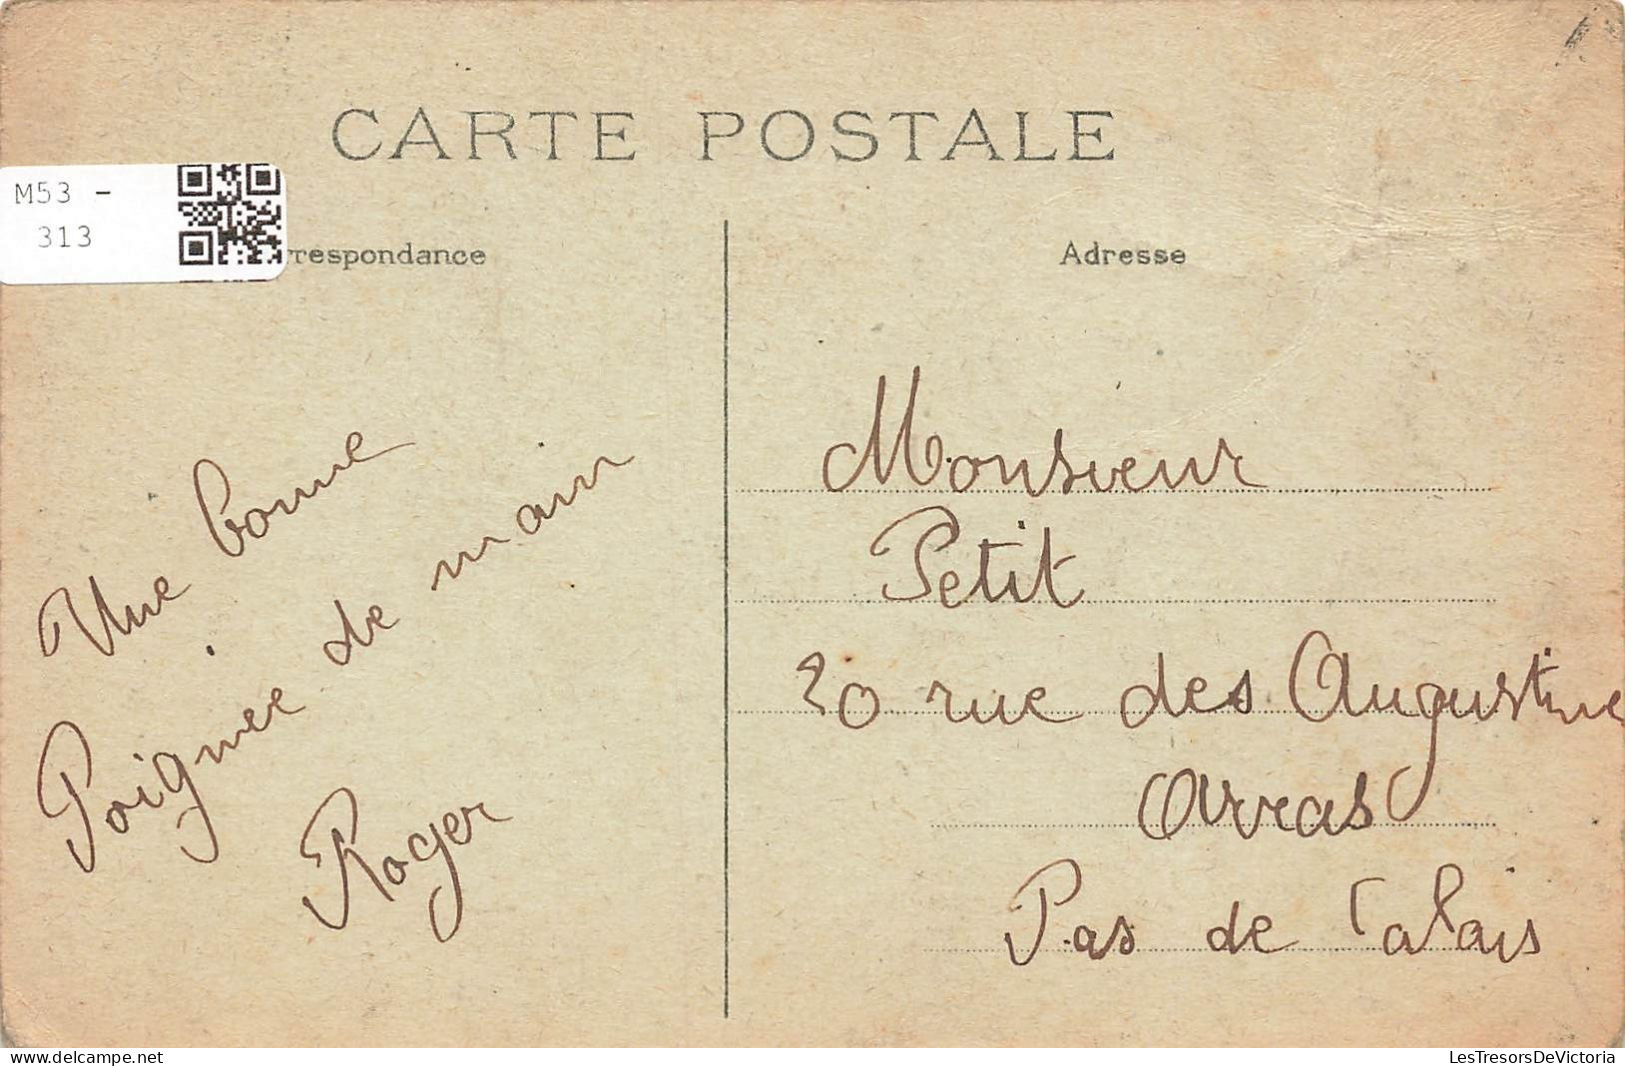 CARTE POSTALE
M53 -
313
rrespondance
Adresse
Une bonne
Poignee de main
Roger
Monsieur
Petit
20 rue des Augustine
Arras
Pas de Calais
delcampe.net
LesTresorsDeVictoria